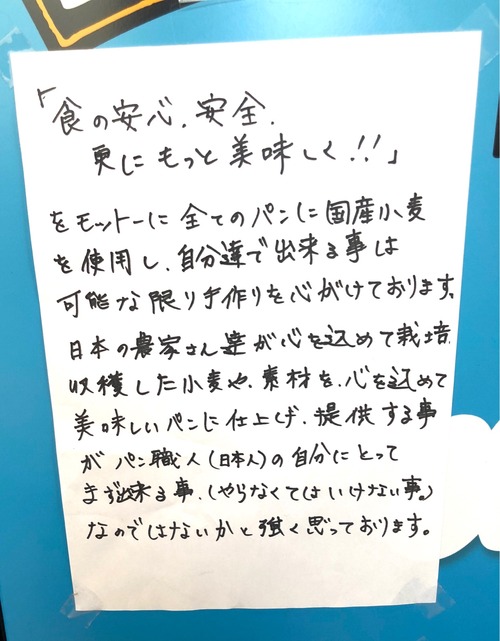 「食の安心、安全、
更にもっと美味しく!!」
をモットーに全てのパンに国産小麦
を使用し、自分達で出来る事は
可能な限り手作りを心がけております。
日本の農家さん達が心を込めて栽培、
収穫した小麦や、素材を、心を込めて
美味しいパンに仕上げ、提供する事
がパン職人(日本人)の自分にとって
まず出来る事、(やらなくてはいけない事。)
なのではないかと強く思っております。